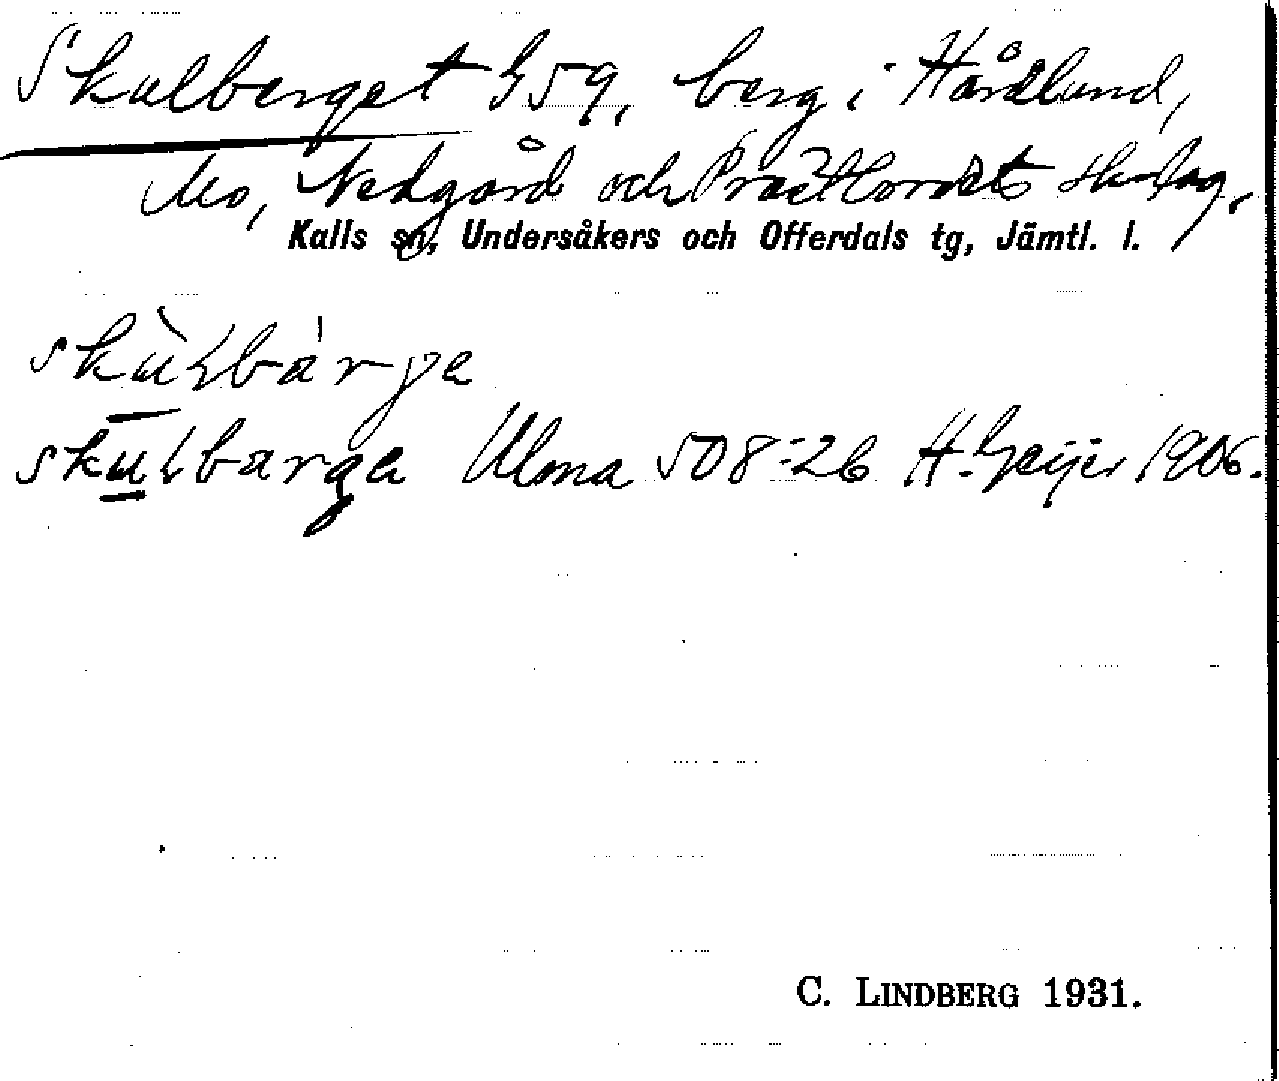 Skulberget G59, berg i Hårdlund,
Mo, Nedgård och Prästbordets skifteslag,
Kalls sn, Undersåkers och Offerdals tg, Jämtl. l.
Ulma 508:26 H. Geijer 1906.
C. LINDBERG 1931.